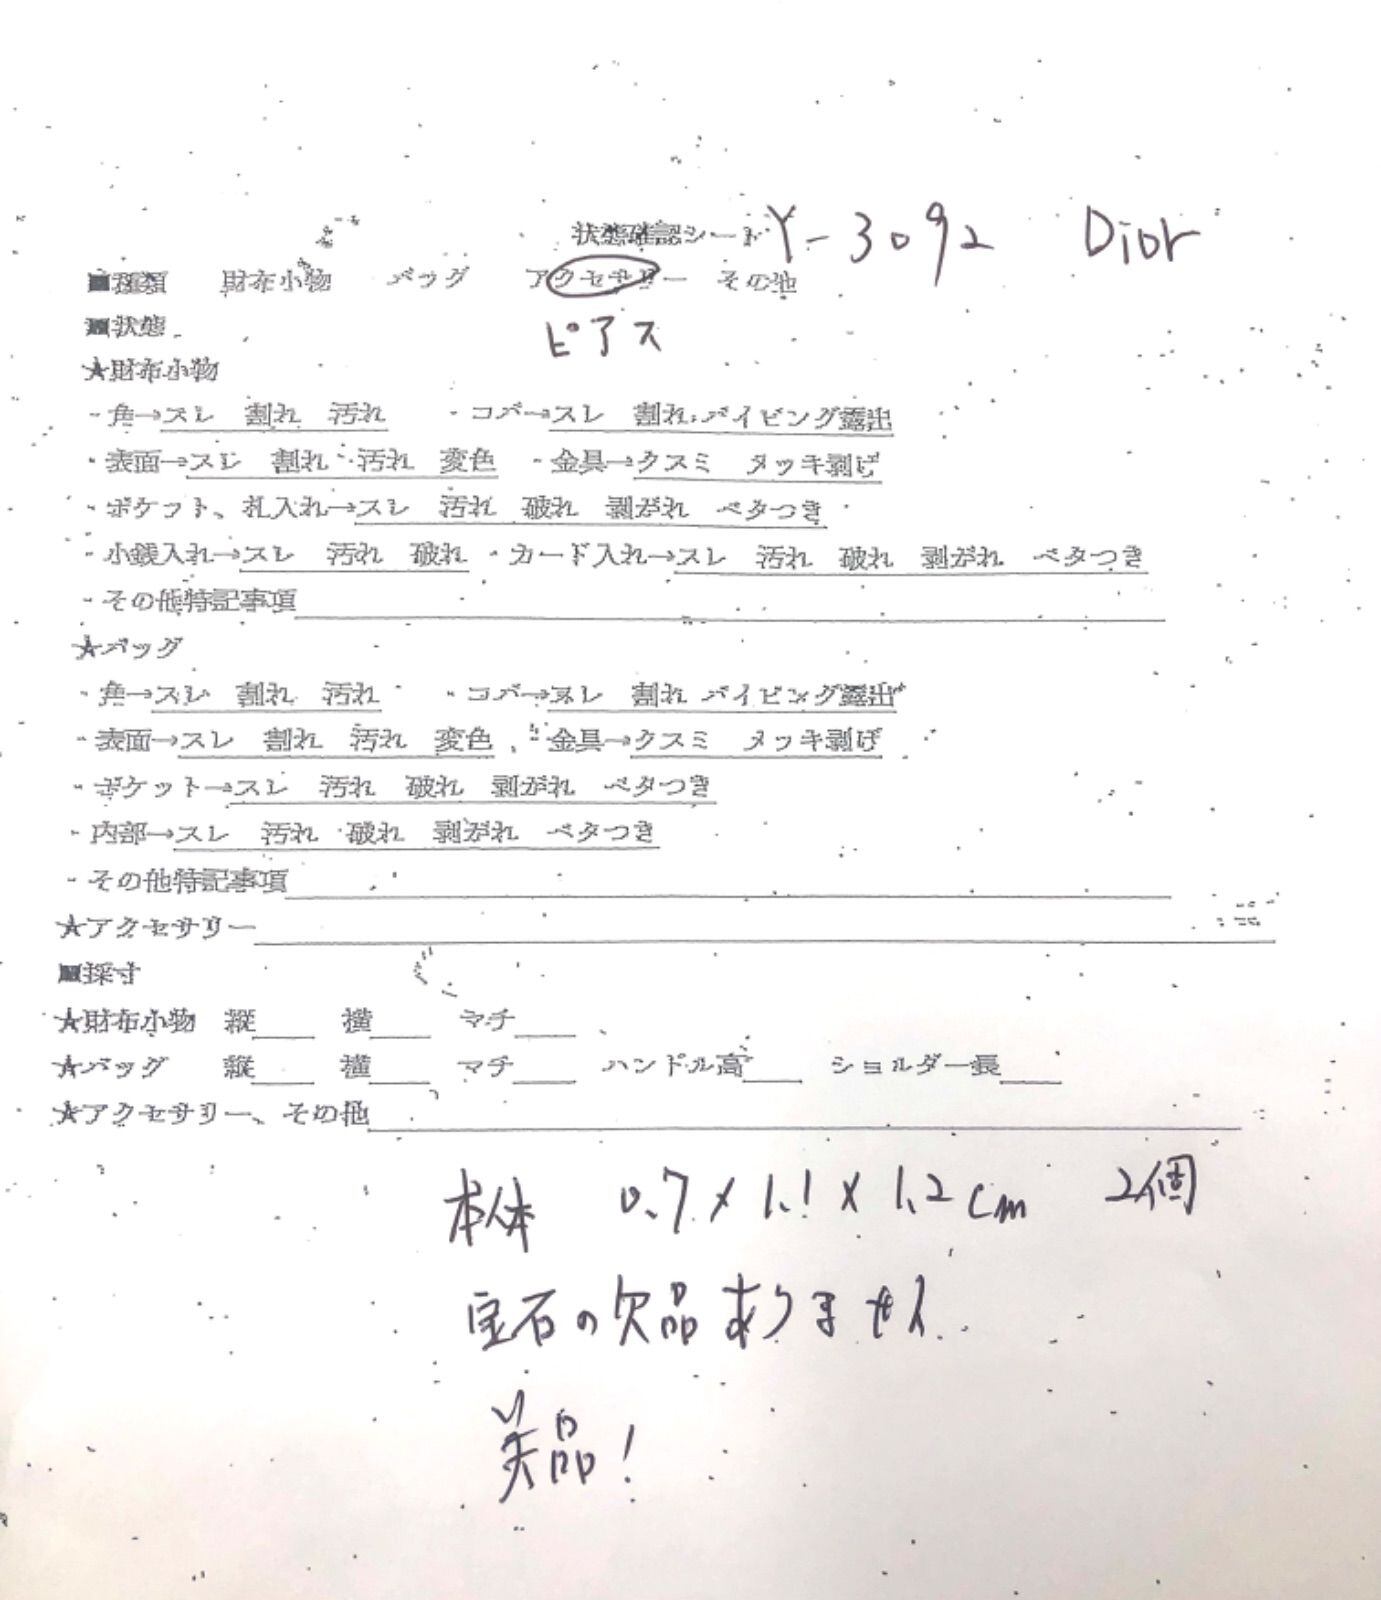 状態確認シート Y-3092 Dior
■種類 財布小物 バッグ アクセサリー その他
■状態 ピアス
★財布小物
・角→スレ 割れ 汚れ ・コバ→スレ 割れ パイピング露出
・表面→スレ 割れ 汚れ 変色 ・金具→クスミ メッキ剥げ
・ポケット、札入れ→スレ 汚れ 破れ 剥がれ ベタつき
・小銭入れ→スレ 汚れ 破れ ・カード入れ→スレ 汚れ 破れ 剥がれ ベタつき
・その他特記事項
★バッグ
・角→スレ 割れ 汚れ ・コバ→スレ 割れ パイピング露出
・表面→スレ 割れ 汚れ 変色 ・金具→クスミ メッキ剥げ
・ポケット→スレ 汚れ 破れ 剥がれ ベタつき
・内部→スレ 汚れ 破れ 剥がれ ベタつき
・その他特記事項
★アクセサリー
■採寸
★財布小物 縦 横 マチ
★バッグ 縦 横 マチ ハンドル高 ショルダー長
★アクセサリー、その他
本体 0.7×1.1×1.2cm 2個
宝石の欠品ありません
美品!